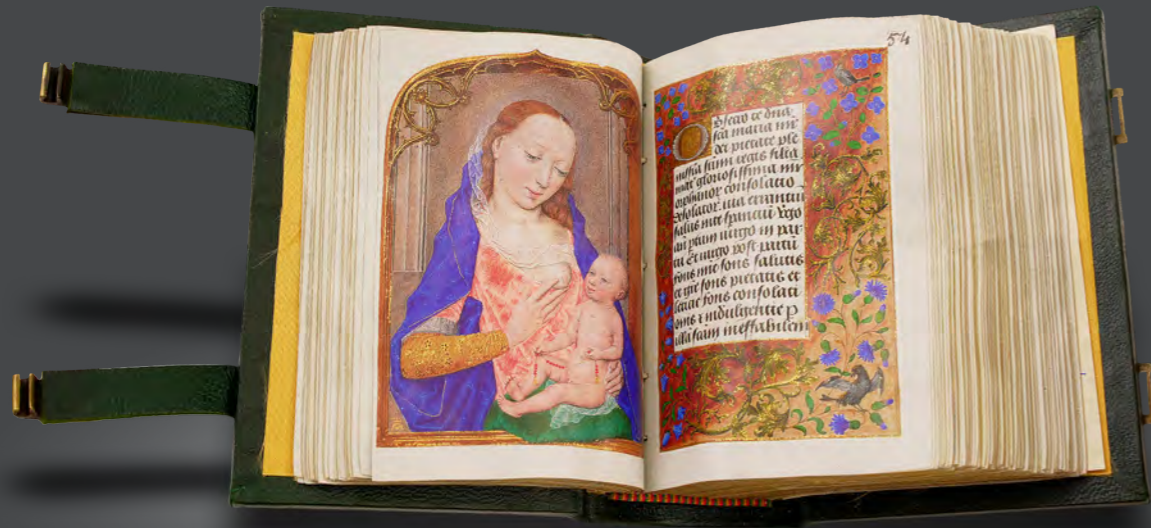 54
Obsecro te dn̄a
sc̄a maria mr̄
dei pietate ple
nissīa sūmi regis filia
mat̄ gloriosissima mr̄
orphanoꝝ consolatio
desolatoꝝ. uia errantiū
salus
an ptum uirgo in par
tu Et uirgo post partū
fons mīe fons salutis
et gr̄e fons pietatis et
leticie fons consolati
onis ⁊ indulgentie p
illā sc̄am ineffabilem